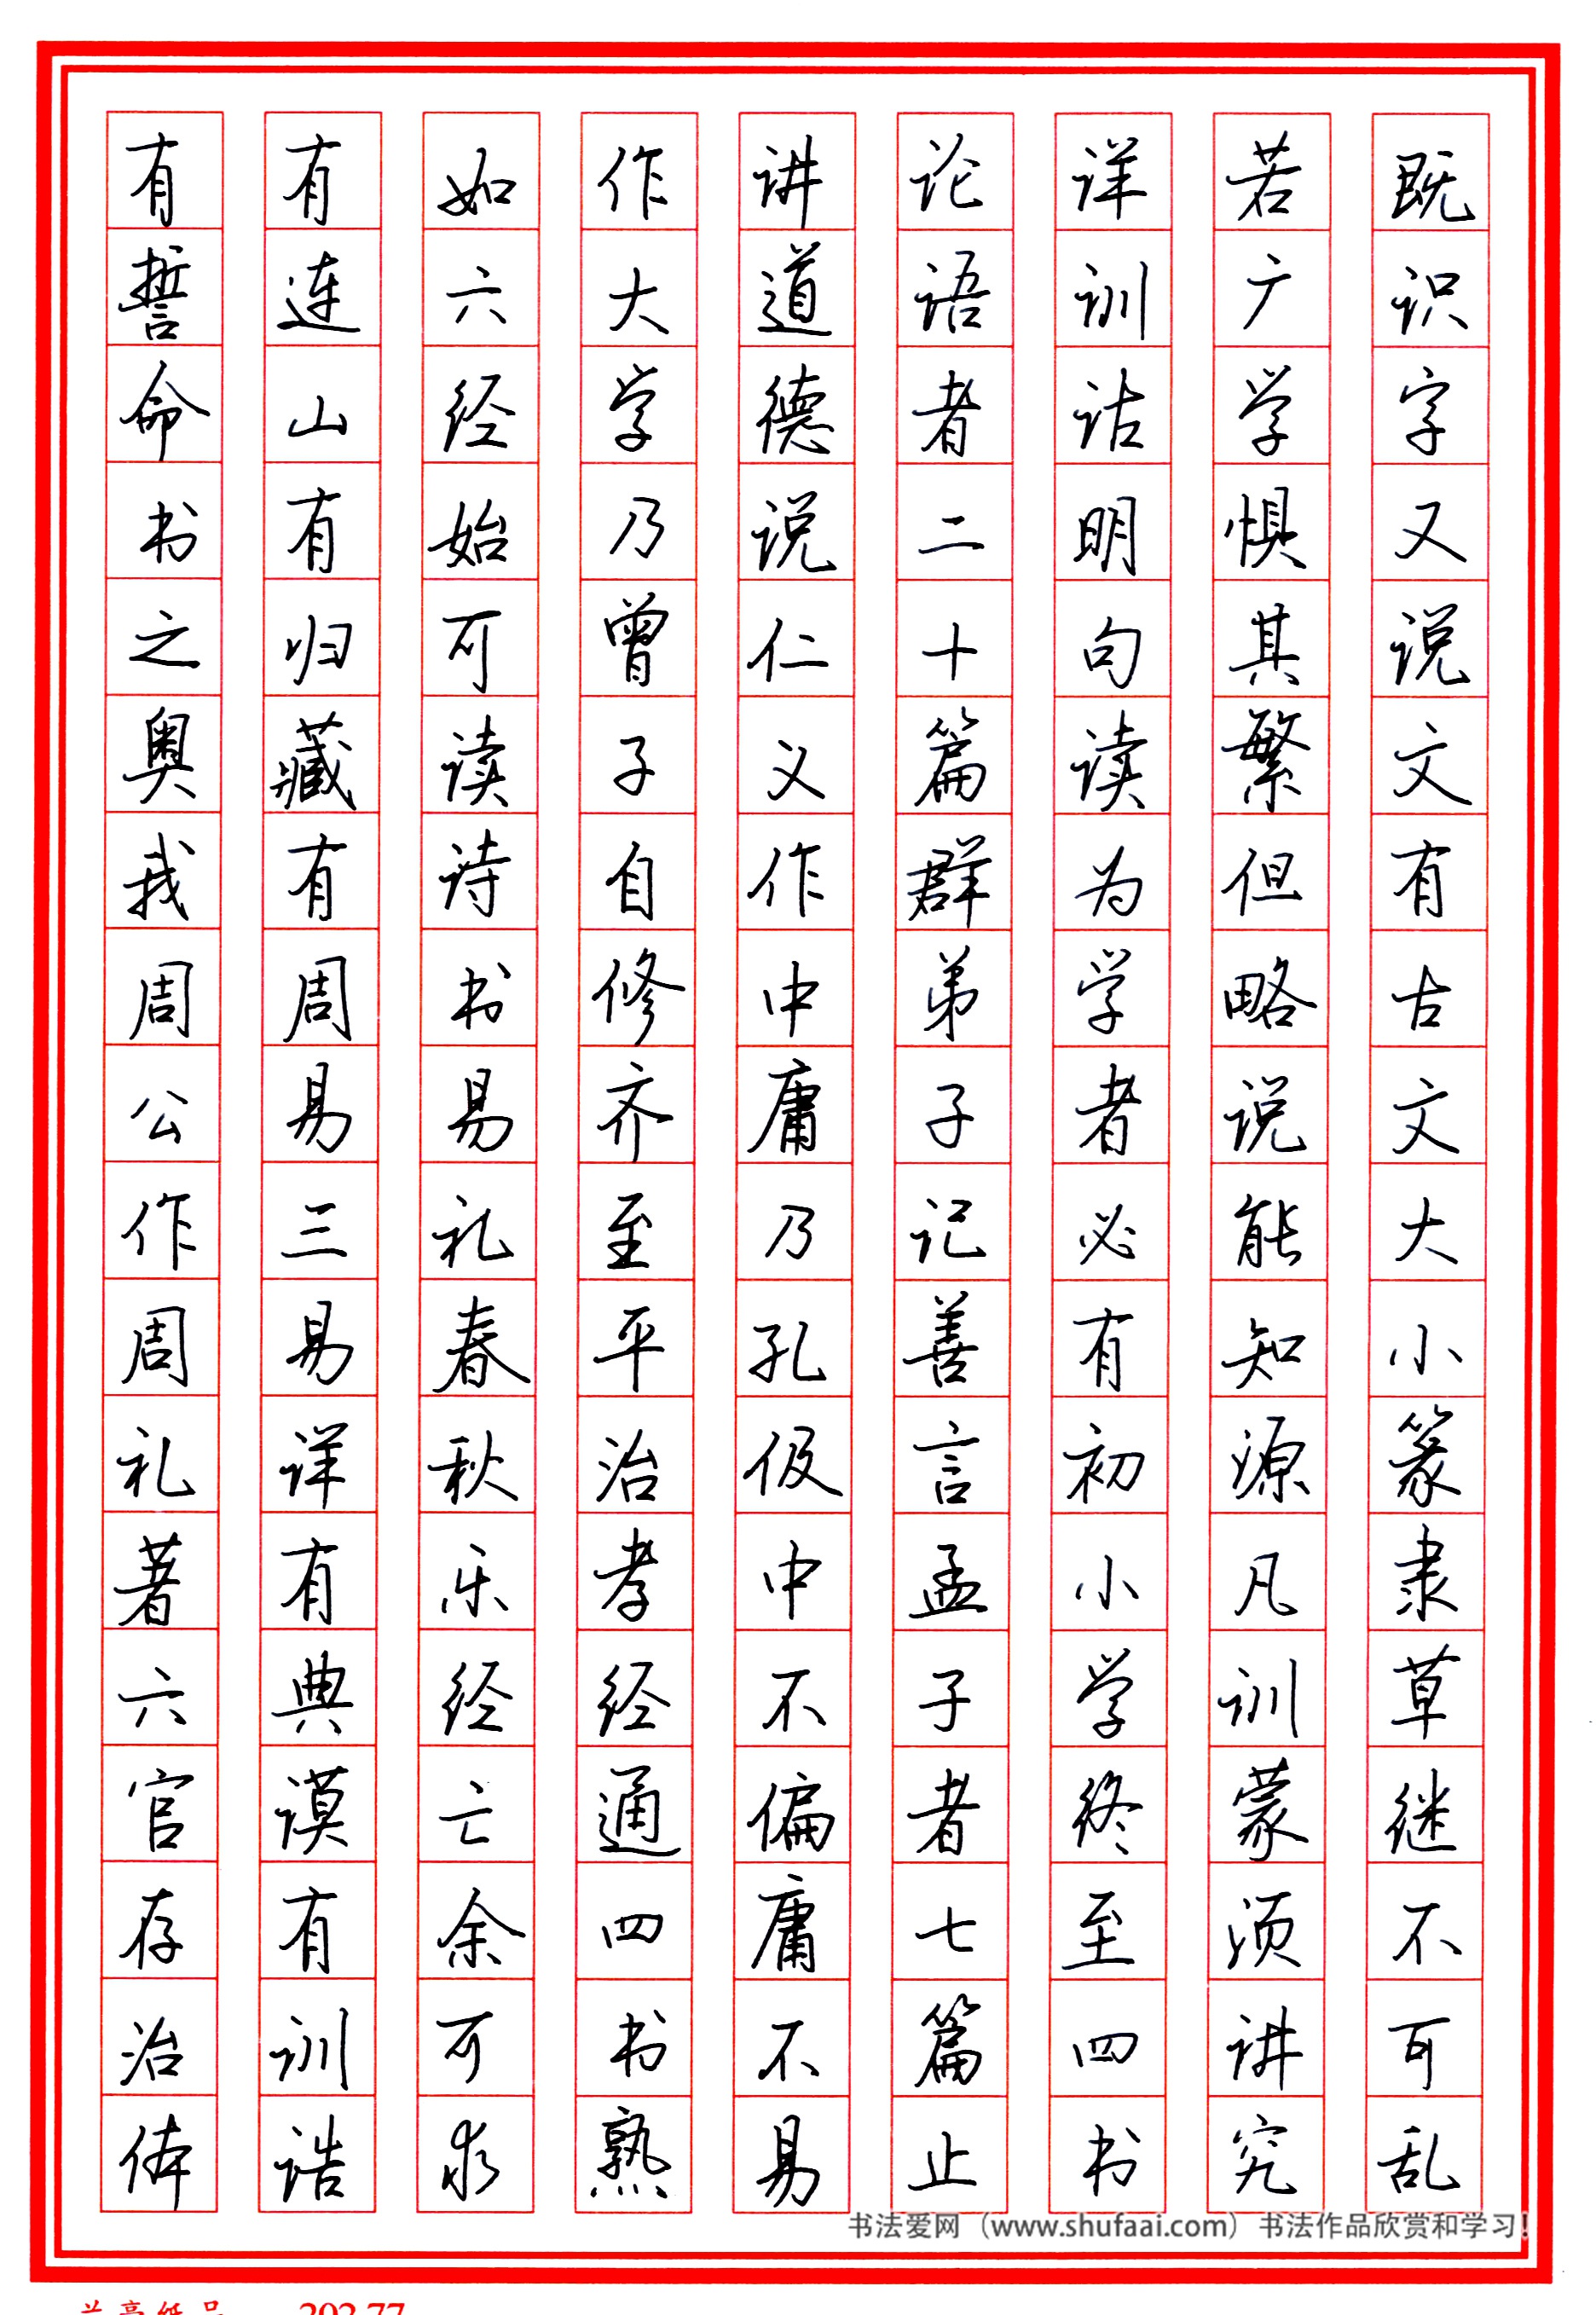 既识字又说文有古文大小篆隶草继不可乱
若广学惧其繁但略说能知源凡训蒙须讲究
详训诂明句读为学者必有初小学终至四书
论语者二十篇群弟子记善言孟子者七篇止
讲道德说仁义作中庸乃孔伋中不偏庸不易
作大学乃曾子自修齐至平治孝经通四书熟
如六经始可读诗书易礼春秋乐经亡余可求
有连山有归藏有周易三易详有典谟有训诰
有誓命书之奥我周公作周礼著六官存治体
书法爱网（www.shufaai.com）书法作品欣赏和学习！